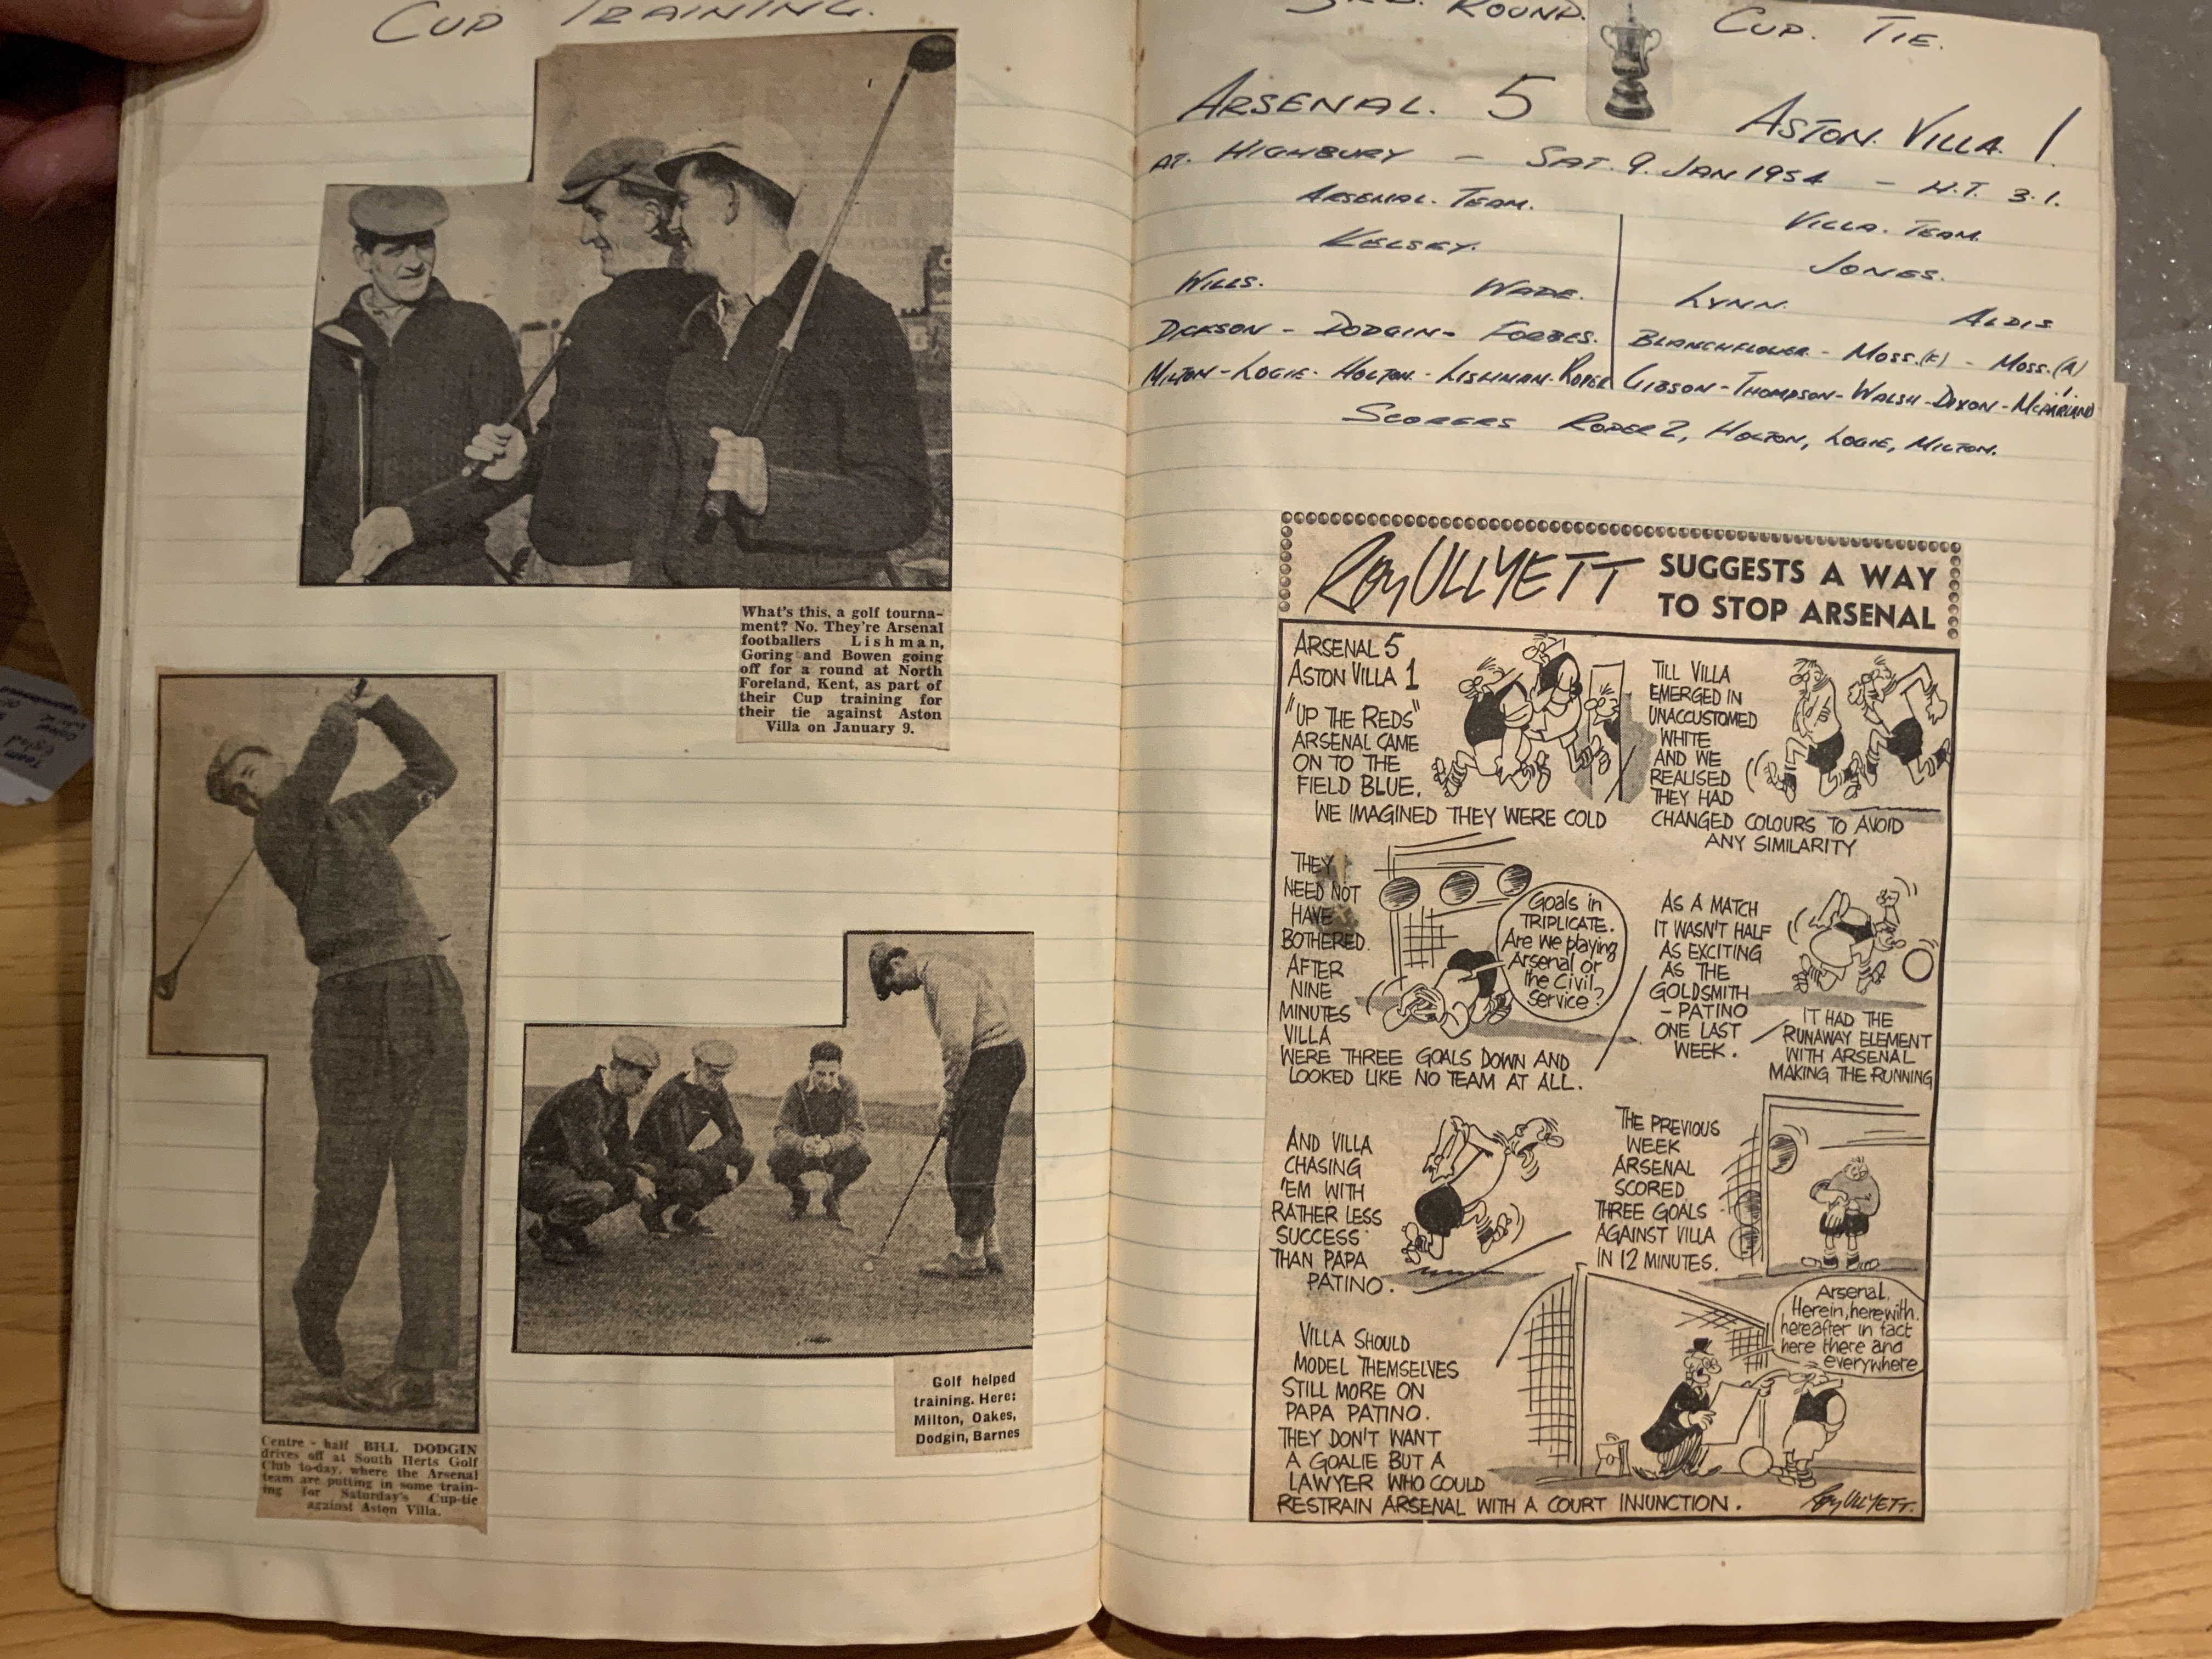 CUP TRAINING.
What's this, a golf tourna-
ment? No. They're Arsenal
footballers Lishman,
Goring and Bowen going
off for a round at North
Foreland, Kent, as part of
their Cup training for
their tie against Aston
Villa on January 9.
Centre-half BILL DODGIN
drives off at South Herts Golf
Club to-day, where the Arsenal
team are putting in some train-
ing for Saturday's Cup-tie
against Aston Villa.
Golf helped
training. Here:
Milton, Oakes,
Dodgin, Barnes
3RD. ROUND. CUP. TIE.
ARSENAL. 5 ASTON. VILLA. 1.
AT. HIGHBURY - SAT. 9. JAN 1954 - H.T. 3.1.
ARSENAL. TEAM.
KELSEY.
WILLS. WADE.
DICKSON - DODGIN - FORBES.
MILTON - LOGIE - HOLTON - LISHMAN - ROPER
VILLA. TEAM.
JONES.
LYNN. ALDIS.
BLANCHFLOWER - MOSS.(F) - MOSS.(A)
GIBSON - THOMPSON - WALSH - DIXON - McPARLAND
SCORERS ROPER 2, HOLTON, LOGIE, MILTON.
Roy ULLYETT SUGGESTS A WAY
TO STOP ARSENAL
ARSENAL 5
ASTON VILLA 1
"UP THE REDS"
ARSENAL CAME
ON TO THE
FIELD BLUE.
WE IMAGINED THEY WERE COLD
TILL VILLA
EMERGED IN
UNACCUSTOMED
WHITE
AND WE
REALISED
THEY HAD
CHANGED COLOURS TO AVOID
ANY SIMILARITY
THEY
NEED NOT
HAVE
BOTHERED.
AFTER
NINE
MINUTES
VILLA
WERE THREE GOALS DOWN AND
LOOKED LIKE NO TEAM AT ALL.
Goals in
TRIPLICATE.
Are we playing
Arsenal or
the Civil
Service?
AS A MATCH
IT WASN'T HALF
AS EXCITING
AS THE
GOLDSMITH
- PATINO
ONE LAST
WEEK.
IT HAD THE
RUNAWAY ELEMENT
WITH ARSENAL
MAKING THE RUNNING
AND VILLA
CHASING
'EM WITH
RATHER LESS
SUCCESS
THAN PAPA
PATINO.
THE PREVIOUS
WEEK
ARSENAL
SCORED
THREE GOALS
AGAINST VILLA
IN 12 MINUTES.
VILLA SHOULD
MODEL THEMSELVES
STILL MORE ON
PAPA PATINO.
THEY DON'T WANT
A GOALIE BUT A
LAWYER WHO COULD
RESTRAIN ARSENAL WITH A COURT INJUNCTION.
Arsenal,
Herein, herewith,
hereafter in fact
here there and
everywhere
Roy ULLYETT.